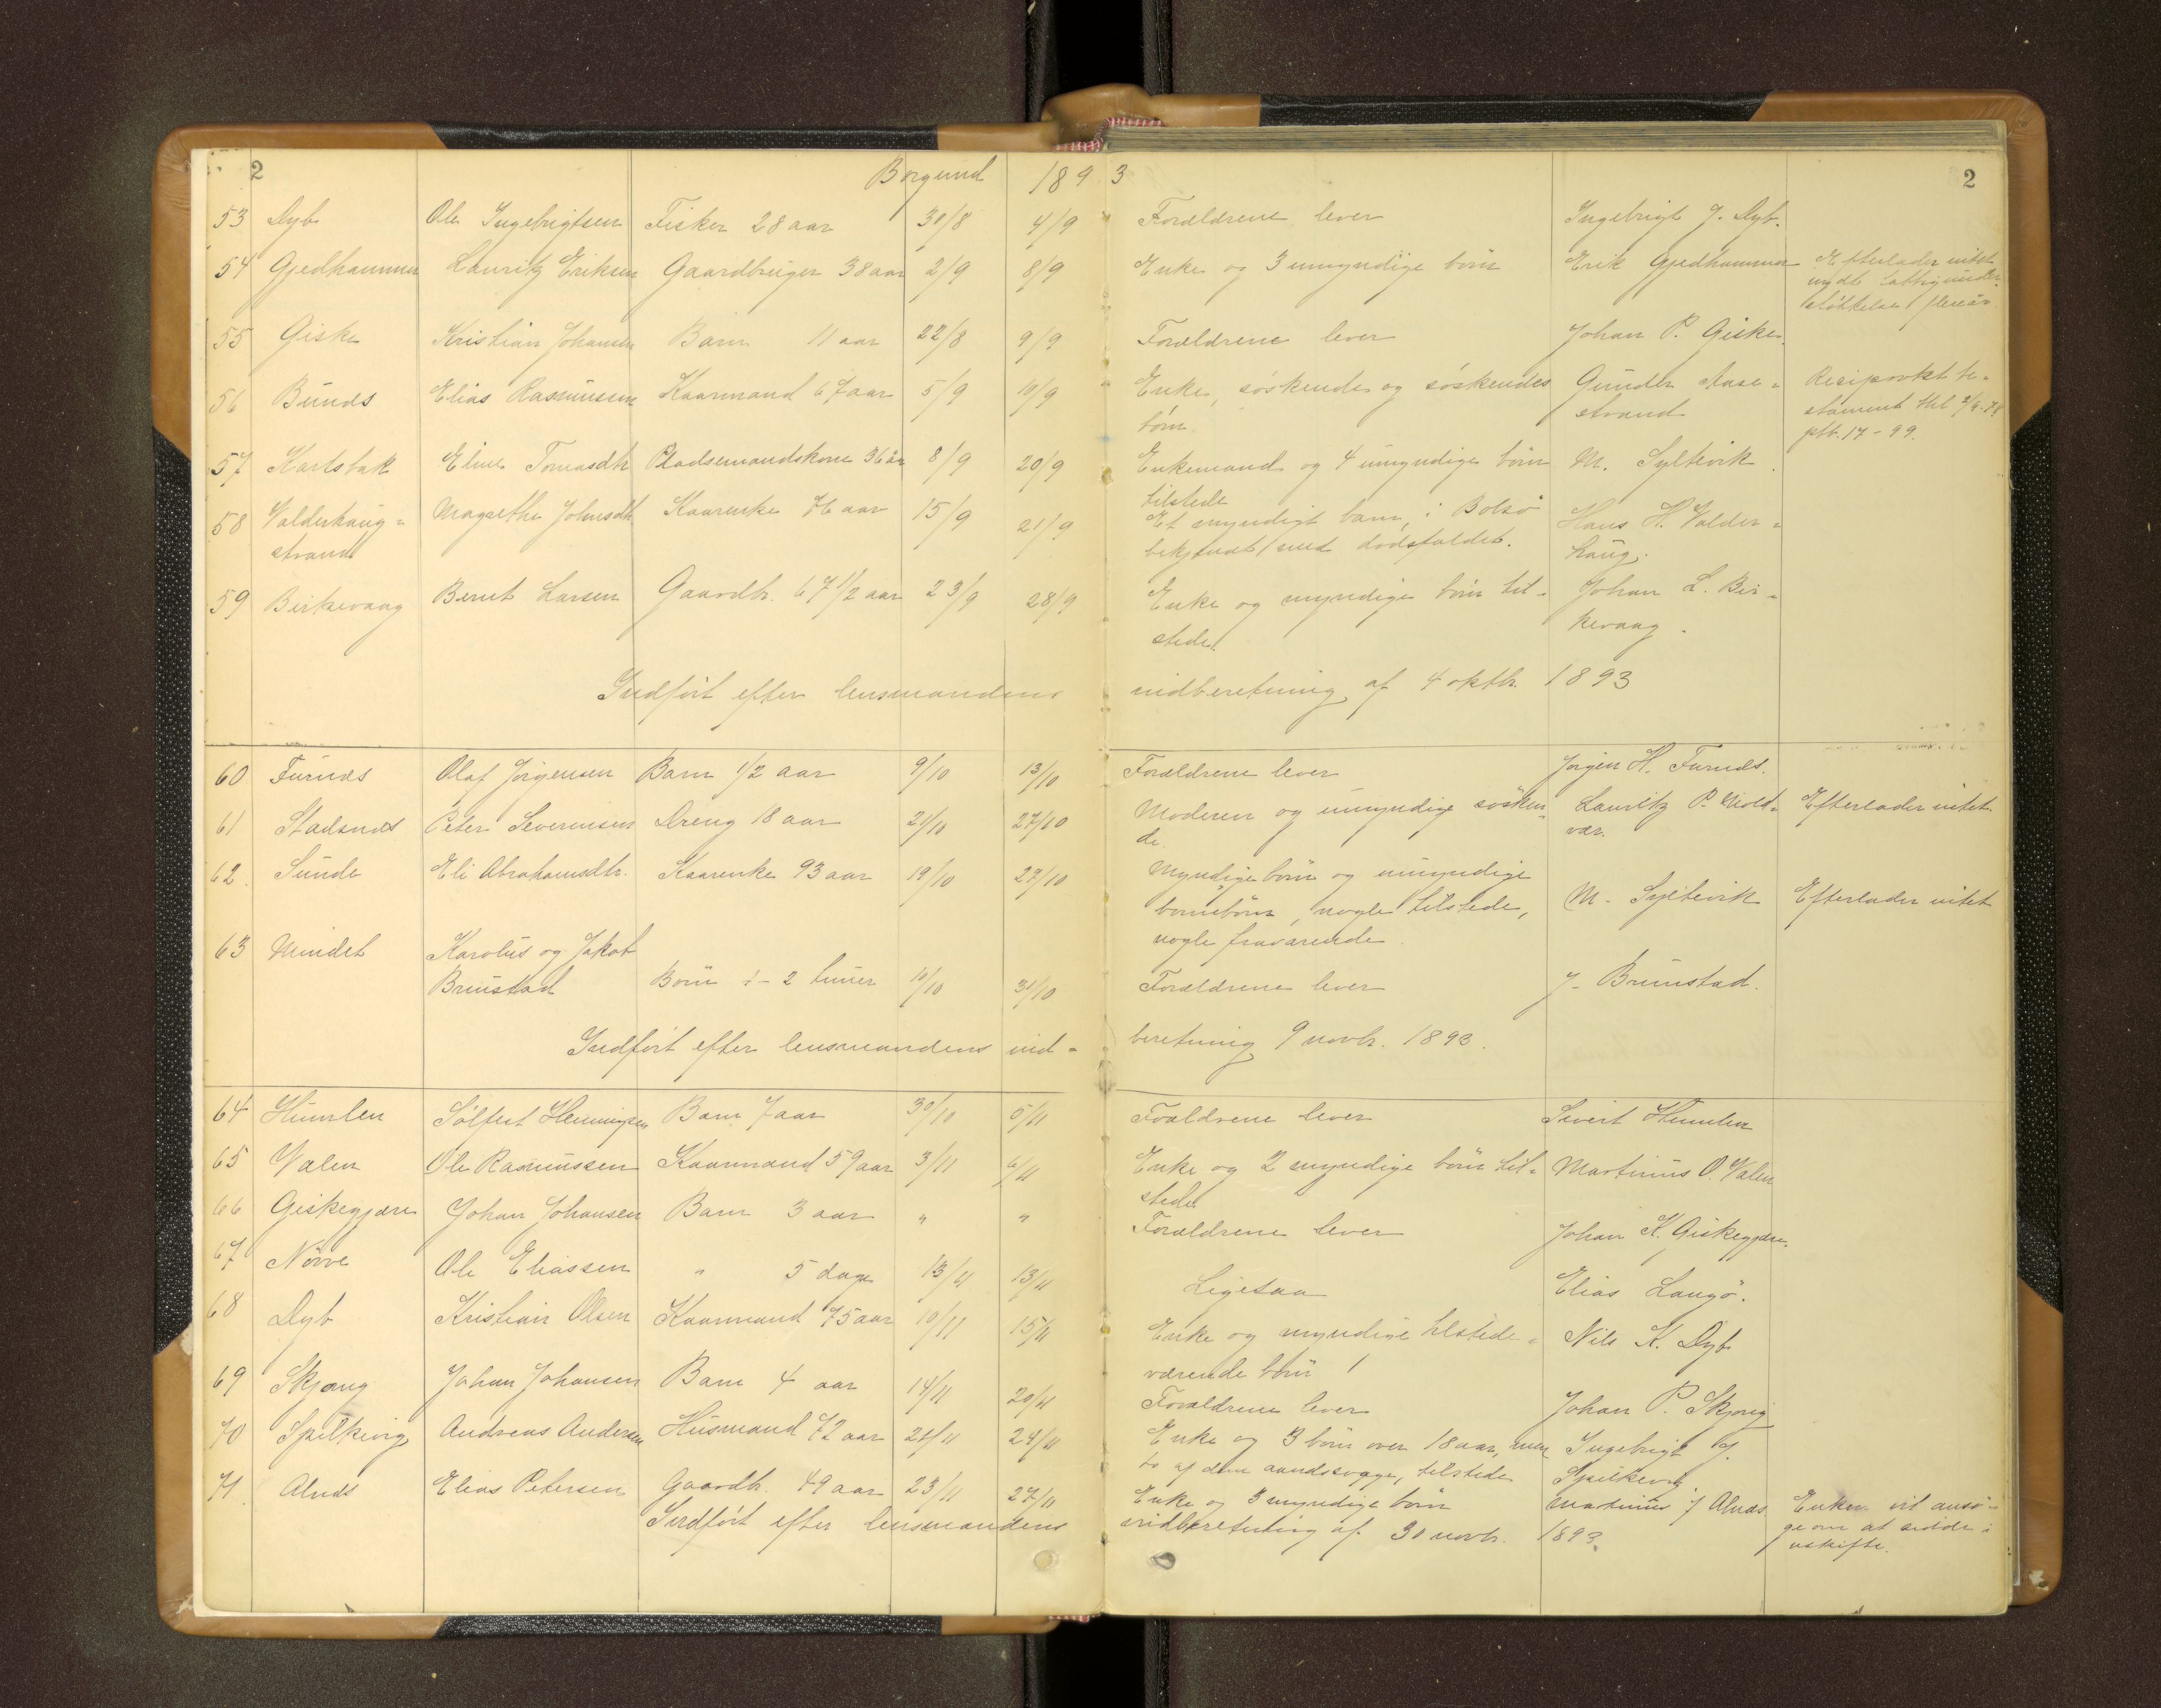 2 Borgund 1893 2
53 Dyb Ole Ingebrigtsen Fisker 28 aar 30/8 4/9 Forældrene lever Ingebrigt J. Dyb.
54 Gjedhammer Lauritz Eriksen Gaardbruger 38 aar 2/9 8/9 Enke og 3 umyndige børn Erik Gjedhammer Efterlader intet
nydt fattigunder-
støttelse i flere år
55 Giske Kristian Johansen Barn 11 aar 22/8 9/9 Forældrene lever Johan P. Giske.
56 Bunds Elias Rasmussen Kaarmand 67 aar 5/9 10/9 Enke, søskende og søskendes Gunder Aase- Resiprokt te-
børn strand stament thl 2/4-78
ptb. 17-99.
57 Karlsbak Eline Tomasdtr Pladsemandskone 36 år 8/9 20/9 Enkemand og 4 umyndige børn M. Syltevik
tilstede
58 Valderhaug- Magrethe Johnsdtr Kaarenke 76 aar 15/9 21/9 Et myndigt barn, i Bolsø Hans H. Valder-
strand bekjendt med dødsfaldet. haug.
59 Birkevaag Bernt Larsen Gaardbr. 67 1/2 aar 23/9 28/9 Enke og myndige børn til- Johan L. Bir-
stede. kevaag.
Indført efter lensmandens indberetning af 4 oktbr. 1893
60 Furnæs Olaf Jørgensen Barn 1/2 aar 9/10 13/10 Forældrene lever Jørgen H. Furnæs.
61 Stadsnæs Peter Severinsen Dreng 18 aar 21/10 27/10 Moderen og umyndige søsken- Lauritz P. Mold- Efterlader intet
de. vær.
62. Sunde Eli Abrahamsdtr. Kaarenke 93 aar 19/10 27/10 Myndige børn og umyndige
børnebørn, nogle tilstede, M. Syltevik Efterlader intet
nogle fraværende.
63 Mindet Karolus og Jakob
Brunstad Børn 1-2 timer 10/10 31/10 Forældrene lever J. Brunstad.
Indført efter lensmandens ind-beretning 9 novbr. 1893.
64 Humlen Sølfest Henningsen Barn 7 aar 30/10 5/11 Foældrene lever Sivert Humlen
65 Valen Ole Rasmussen Kaarmand 59 aar 3/11 6/11 Enke og 2 myndige børn til- Martinus O. Valen
stede
66 Giskegjære Johan Johansen Barn 3 aar " " Forældrene lever Johan K. Giskegjære.
67 Nørve Ole Eliassen " 5 dage 13/11 13/11 Ligesaa Elias Langø.
68 Dyb Kristian Olsen Kaarmand 75 aar 10/11 15/11 Enke og myndige tilstede- Nils K. Dyb
værende børn
69 Skjong Johan Johansen Barn 4 aar 14/11 20/11 Forældrene lever Johan P. Skjong
70 Spilkevig Andreas Andersen Husmand 72 aar 21/11 24/11 Enke og 3 børn over 18 aar, men Ingebrigt J.
to af dem aandssvage, tilstede Spilkevig
71. Alnæs Elias Petersen Gaardbr. 49 aar 23/11 27/11 Enke og 3 myndige børn Martinus J Alnæs. Enken vil ansø-
ge om at sidde i
uskifte.
Indført efter lensmandens indberetning af 30 novbr. 1893.